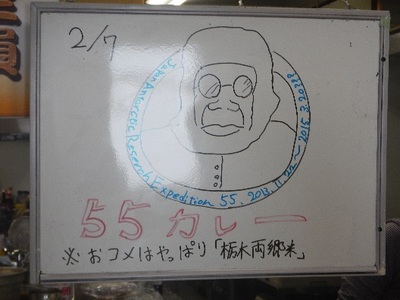 2/7
Japan Antarctic Research Expedition 55, 2013.11.22~2015.3.
55カレー
※おコメはやっぱり「栃木両郷米」